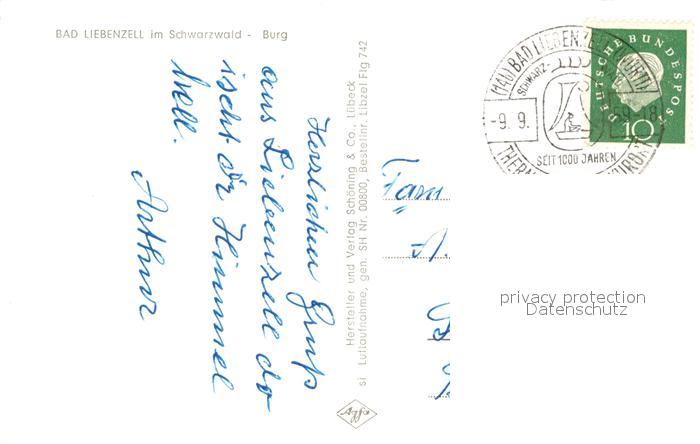 BAD LIEBENZELL im Schwarzwald - Burg
Herzlichen Gruß
aus Liebenzell do
ischt dr Himmel
hell.
Arthur
Hersteller und Verlag Schöning & Co., Lübeck
si Luftaufnahme, gen. SH Nr. 00800, Bestellnr. Libzel Flg 742
Fam
DEUTSCHE BUNDESPOST
10
BAD LIEBENZELL
SCHWARZ-
-9. 9.
59-18
SEIT 1000 JAHREN
THERM
KURORT
privacy protection
Datenschutz